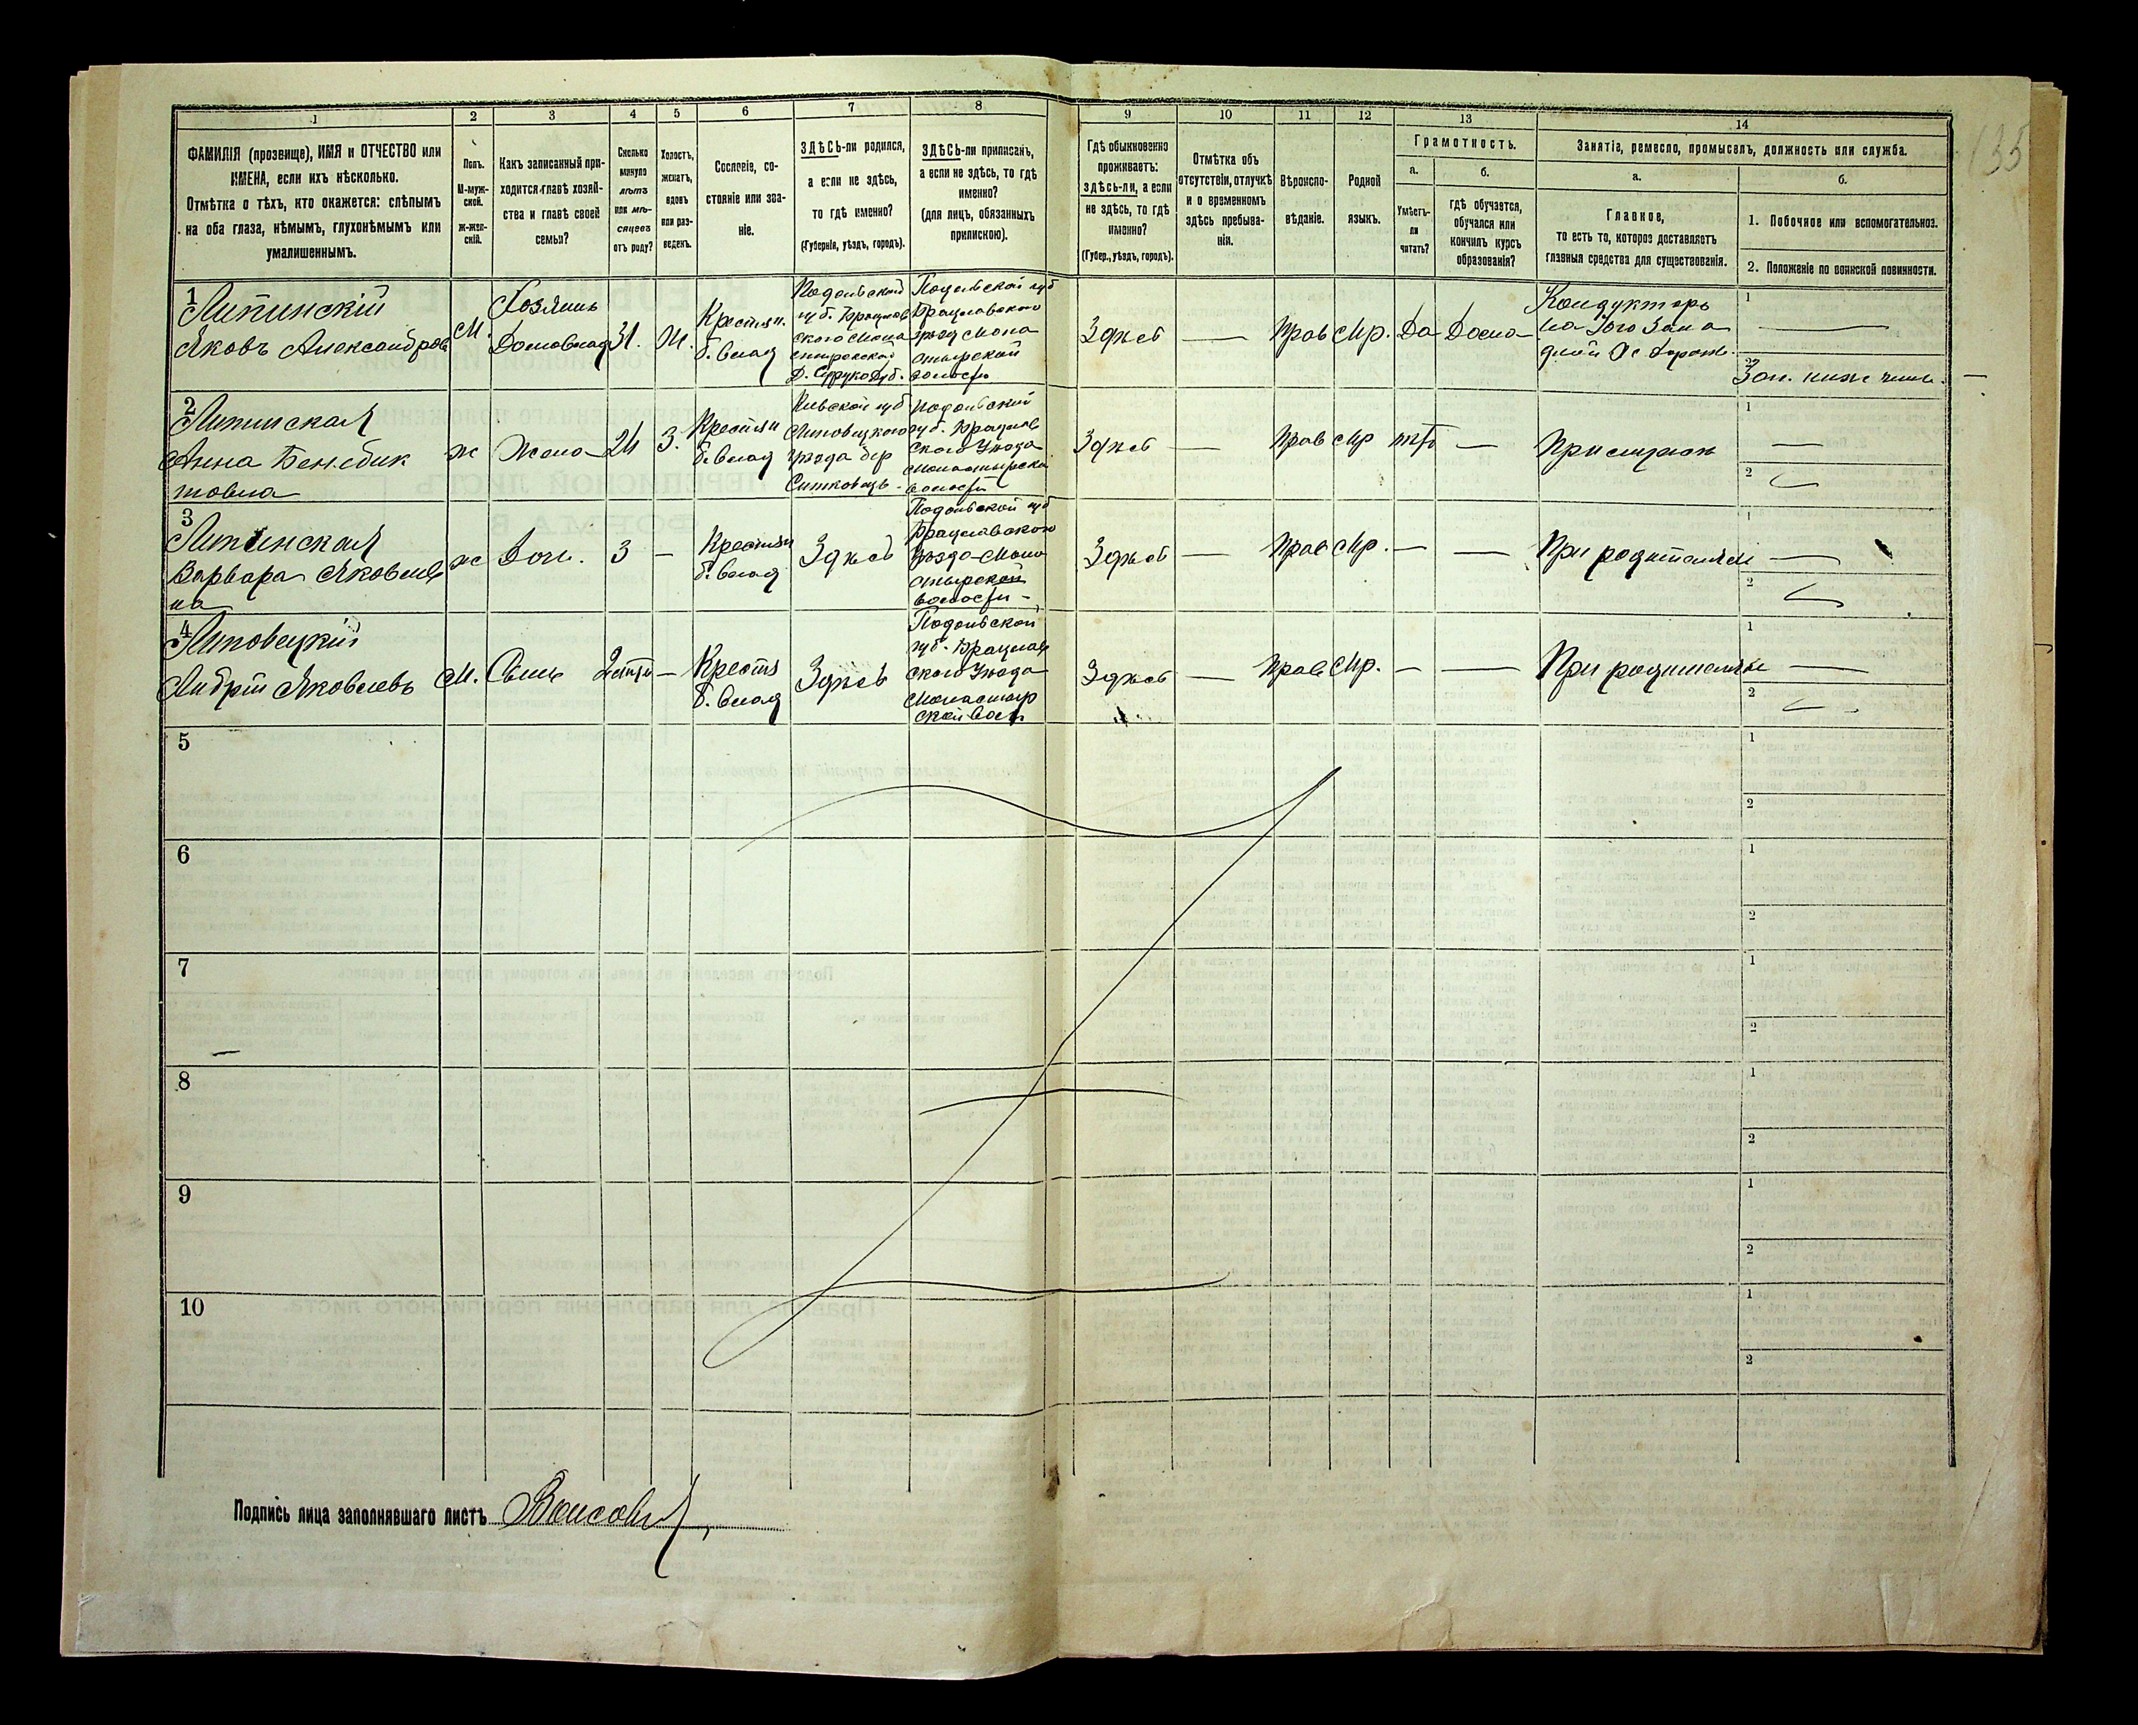 135
1 2 3 4 5 6 7 8 9 10 11 12 13 14
ФАМИЛІЯ (прозвище), ИМЯ и ОТЧЕСТВО или
ИМЕНА, если ихъ нѣсколько.
Отмѣтка о тѣхъ, кто окажется: слѣпымъ
на оба глаза, нѣмымъ, глухонѣмымъ или
умалишеннымъ.
Полъ.
М-муж-
ской.
ж-жен-
скій.
Какъ записанный при-
ходится главѣ хозяй-
ства и главѣ своей
семьи?
Сколько
минуло
лѣтъ
или мѣ-
сяцевъ
отъ роду?
Холостъ,
женатъ,
вдовъ
или раз-
веденъ.
Сословіе, со-
стояніе или зва-
ніе.
ЗДѢСЬ-ли родился,
а если не здѣсь,
то гдѣ именно?
(Губернія, уѣздъ, городъ).
ЗДѢСЬ-ли приписанъ,
а если не здѣсь, то гдѣ
именно?
(для лицъ, обязанныхъ
припискою).
Гдѣ обыкновенно
проживаетъ:
здѣсь-ли, а если
не здѣсь, то гдѣ
именно?
(Губер., уѣздъ, городъ).
Отмѣтка объ
отсутствіи, отлучкѣ
и о временномъ
здѣсь пребыва-
ніи.
Вѣроиспо-
вѣданіе.
Родной
языкъ.
Грамотность.
а.
Умѣетъ-
ли
читать?
б.
гдѣ обучается,
обучался или
кончилъ курсъ
образованія?
Занятіе, ремесло, промыселъ, должность или служба.
а.
Главное,
то есть то, которое доставляетъ
главныя средства для существованія.
б.
1. Побочное или вспомогательное.
2. Положеніе по воинской повинности.
1
Липинскій
Яковъ Александров
М.
Хозяинъ
31.
Крестян.
б. влад
Подольской
губ. Брацлав
ского Мона
стырской
Подольской губ
Брацлавского
уезд Мона
стырской
волости
Здѣсь
—
Прав
Мр.
Да
Дома
Кондукторъ
на Юго Запа
дной
1
—
2
Зап. нижн чинъ.
2
Липинская
Анна Бенедик
товна
ж
Жена
24
З.
Крестян
б. влад
Киевской губ
Липовецкого
уезда дер
Подольской
губ. Брацлав
ского Уезда
Монастырской
волости
Здѣсь
—
Прав
Мр
нѣтъ
—
При мужѣ
1
—
2
3
Липинская
Варвара Яковлев
на
ж
Дочь.
3
—
Крестян
б. влад
Здѣсь
Подольской губ
Брацлавского
уезда Мона
стырской
волости
Здѣсь
—
Прав
Мр.
—
—
При родителяхъ
1
—
2
4
Липовецкій
Яковлевъ
М.
Сынъ
—
Крестя
б. влад
Здѣсь
Подольской
губ. Брацлав
ского Уезда
Монастыр
ской вол
Здѣсь
—
Прав
Мр.
—
—
При родителяхъ
1
—
2
5
1
2
6
1
2
7
1
2
8
1
2
9
1
2
10
1
2
Подпись лица заполнявшаго листъ